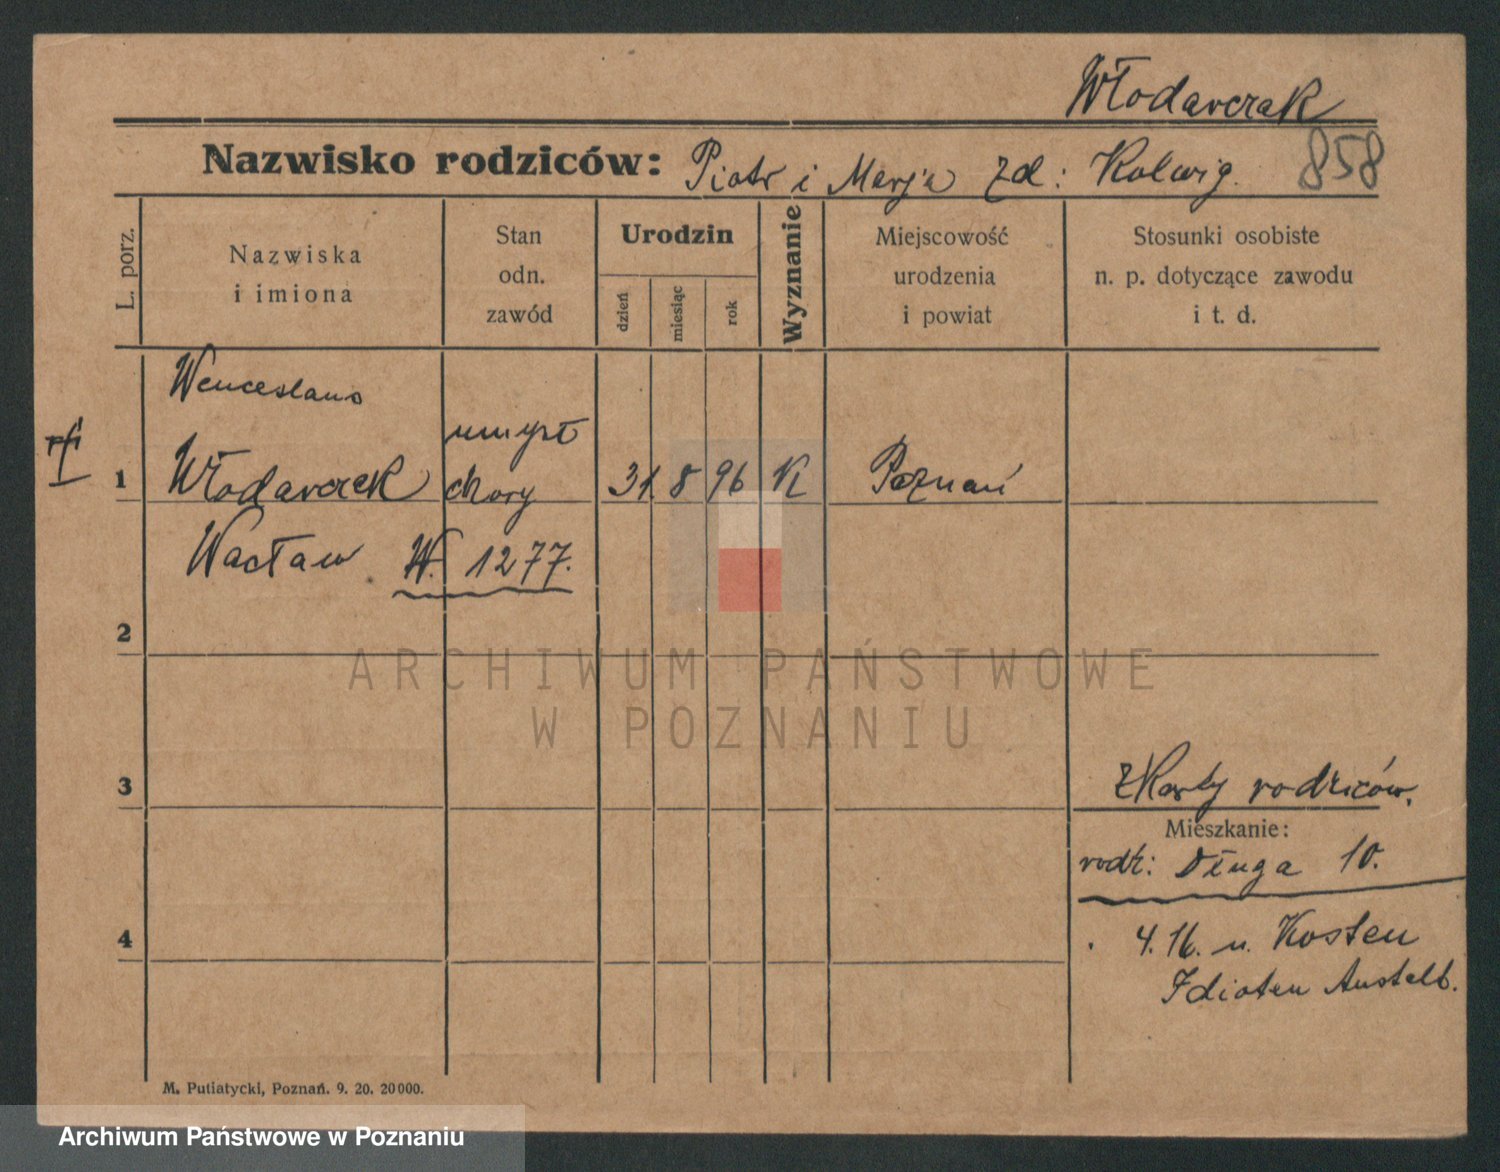 Włodarczak
Nazwisko rodziców: Piotr i Marja zd: Kolwig. 858
L. porz.
Nazwiska
i imiona
Stan
odn.
zawód
Urodzin
dzień
miesiąc
rok
Wyznanie
Miejscowość
urodzenia
i powiat
Stosunki osobiste
n. p. dotyczące zawodu
i t. d.
Wenceslaus
umysł
1 Włodarczak chory 31 8 96 K Poznań
Wacław W. 1277.
2
ARCHIWUM PAŃSTWOWE
W POZNANIU
3
z Karty rodziców.
Mieszkanie:
rodz: Długa 10.
4
4. 16. n. Kosten
Idioten Anstalt.
M. Putiatycki, Poznań. 9. 20. 20000.
Archiwum Państwowe w Poznaniu